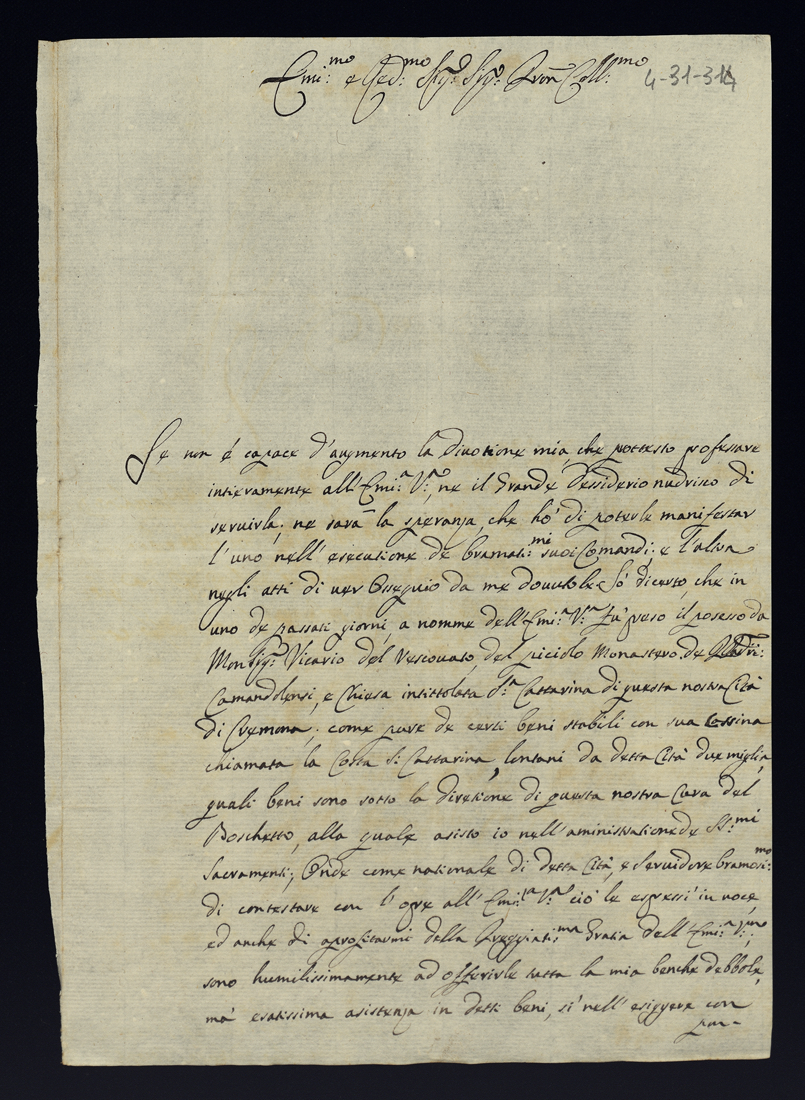 Emi:mo e Red:mo Sig:r Sig:r Pron Coll:mo
4-31-314
Se non é capace d'augmento la divotione mia che pottesto professare
intieramente all'Emi:a V:a, ne il Grande dessiderio nudrisco di
servirla; ne sara la speranza, che hó di poterle manifestar
l'uno nell'esecutione de bramati:mi suoi Comandi: e l'altra
negli atti di ver Ossequio da me dovutole Só dicerto, che in
uno de passati giorni, a nomme dell'Emi:a V:a fu preso il posesso da
Monsig:r Vicario del Vescovato, del piciolo Monastero de
Camandolensi, e Chiesa intittolata S:a Cattarina di questa nostra Cità
di Cremona; come pure de certi beni stabili con sua Cassina
chiamata la Costa S: Cattarina, lontani da detta Cità due miglia,
quali beni sono sotto la diretione di questa nostra Cura del
Boschetto, alla quale asisto io nell'aministratione de SS:mi
Sacramenti; Onde come nationale di detta Cità, e Servidore bramosi:mo
di contestare con l'opre all'Emi:a V:a ció le espressi in voce,
ed anche di aprofitarmi della Preggiati:ma Gratia dell'Emi:a V:,
sono humilissimamente ad offerirle tutta la mia benche debbole,
má esatissima asistenza in detti beni, sí nell'esiggere con
pun-